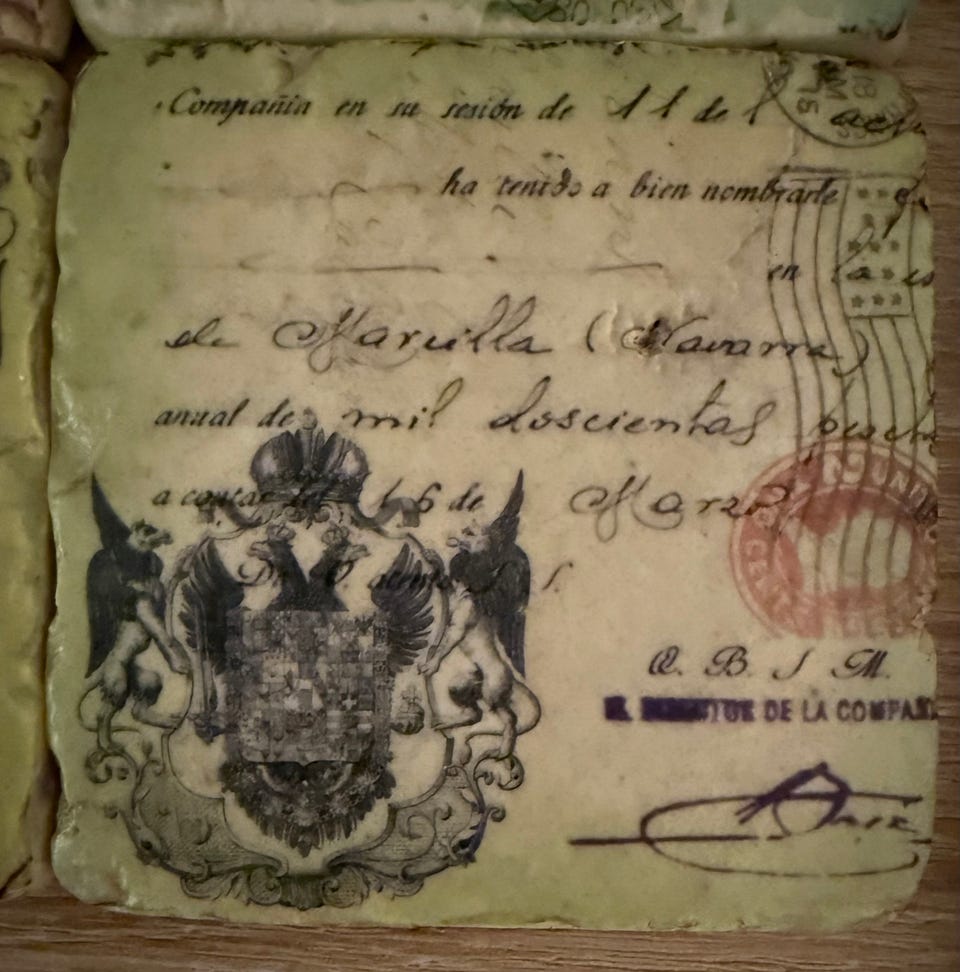 Compañia en su sesión de 11 de
ha tenido a bien nombrarle
en la
de Marcilla (Navarra)
anual de mil doscientas
a contar del 16 de Marzo
De V. atento S. S.
Q. B. S. M.
EL DIRECTOR DE LA COMPAÑ